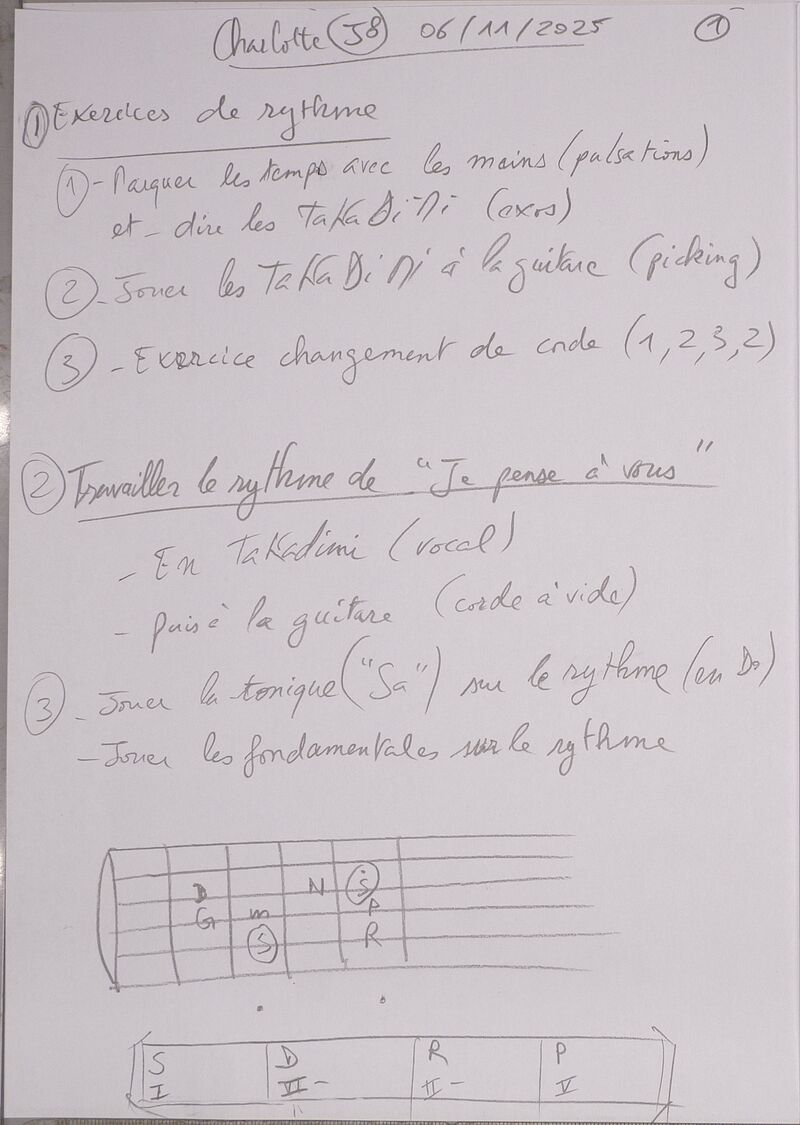 Charlotte (J8) 06/11/2025 ①
① Exercices de rythme
① - Marquer les temps avec les mains (pulsations)
et - dire les TaKaDiMi (exos)
② - Jouer les TaKaDiMi à la guitare (picking)
③ - Exercice changement de corde (1, 2, 3, 2)
② Travailler le rythme de "Je pense à vous"
- En Takadimi (vocal)
- puis à la guitare (corde à vide)
③ - Jouer la tonique ("Sa") sur le rythme (en Do)
- Jouer les fondamentales sur le rythme
D N Ṡ
G m P
S R
S D R P
I VI- II- V